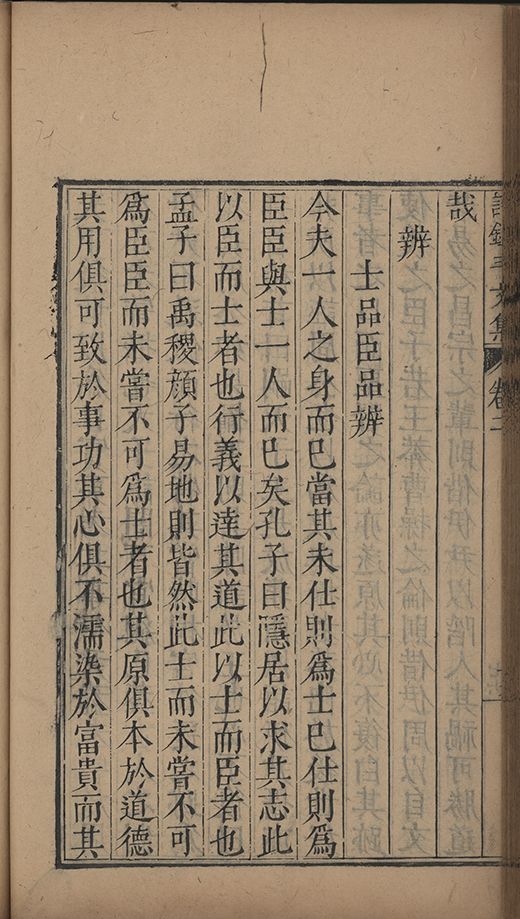 文集 卷二
哉
辨
士品臣品辨
今夫一人之身而已當其未仕則爲士已仕則爲
臣臣與士一人而已矣孔子曰隱居以求其志此
以臣而士者也行義以達其道此以士而臣者也
孟子曰禹稷顔子易地則皆然此士而未嘗不可
爲臣臣而未嘗不可爲士者也其原俱本於道德
其用俱可致於事功其心俱不濡染於富貴而其